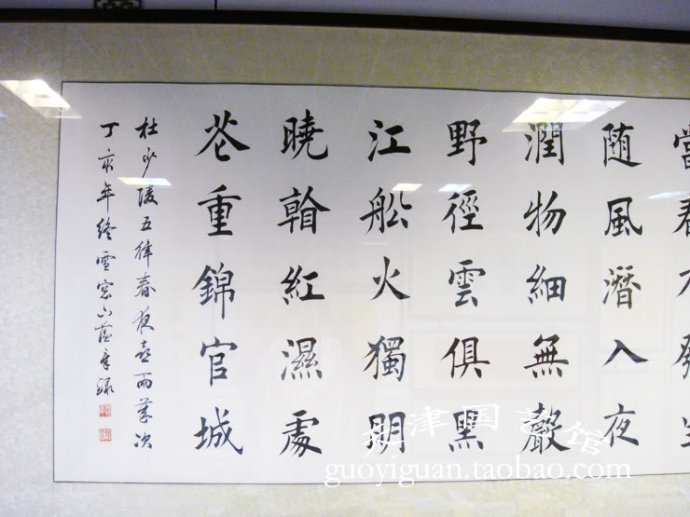 當春乃發生
随風潛入夜
潤物細無聲
野徑雲俱黑
江船火獨明
曉看紅濕處
花重錦官城
杜少陵五律春夜喜雨
丁亥年終雪窓
天津国艺馆
guoyiguan.taobao.com